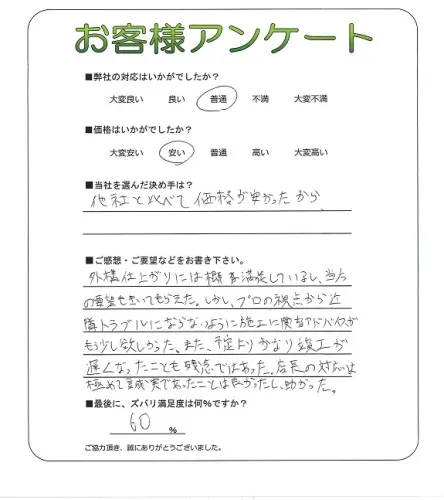 お客様アンケート
■弊社の対応はいかがでしたか？
大変良い 良い 普通 不満 大変不満
■価格はいかがでしたか？
大変安い 安い 普通 高い 大変高い
■当社を選んだ決め手は？
他社と比べて価格が安かったから
■ご感想・ご要望などをお書き下さい。
外構仕上がりには概ね満足しているし、当方
の要望もきいてもらえた。しかし、プロの視点から近
隣トラブルにならないように施工に関するアドバイスが
もう少し欲しかった。また、予定よりかなり竣工が
遅くなったことも残念ではあった。店長の対応は
極めて誠実であったことは良かったし、助かった。
■最後に、ズバリ満足度は何%ですか？
60 %
ご協力頂き、誠にありがとうございました。